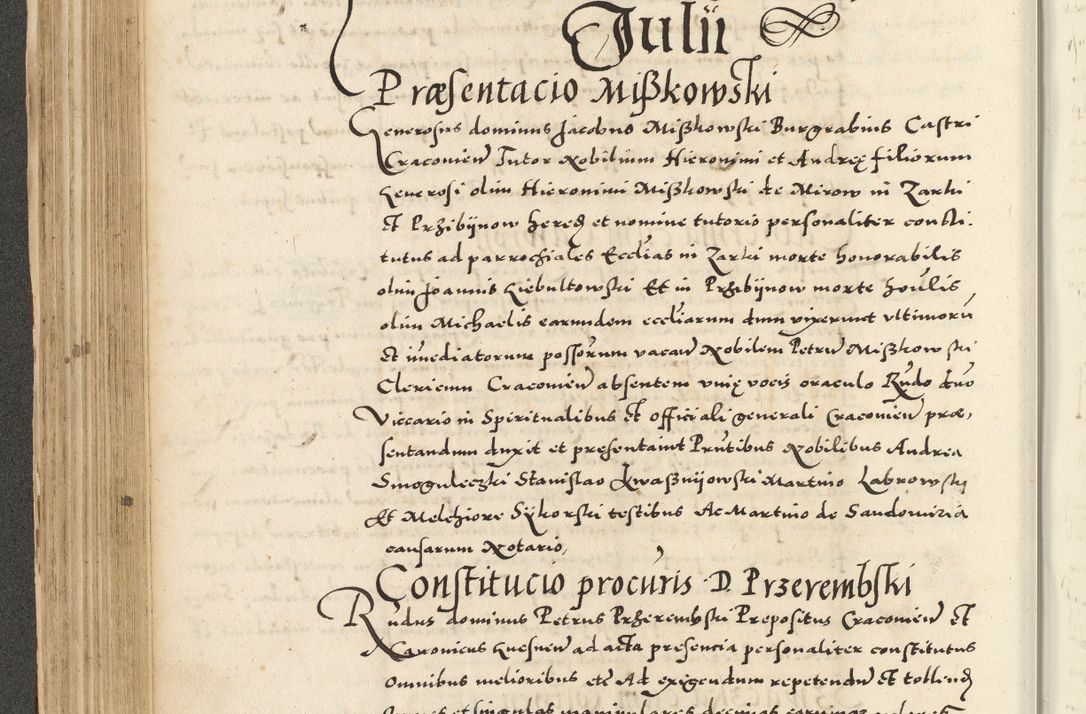 Julii
Præsentacio Mißkowski
Generosus dominus Jacobus Mißkowski Burgrabius Castri
Cracovien Tutor Nobilium Hieronimi et Andreę filiorum
generosi olim Hieronimi Mißkowski de Mirow in Zarki
et Przibijnow hered et nomine tutorio personaliter consti.
tutus ad parrochiales Ecclias in Zarki morte honorabilis
olim Joannis Giebultowski Et in Przibijnow morte honlis
olim Michaelis earundem eccliarum dum vixerunt vltimoru
et imediatorum possorum vacan Nobilem Petru Mißkowski
Clericum Cracovien absentem vnię vocis oraculo Rndo dno
Viccario in Spiritualibus et officiali generali Cracovien præ,
sentandum duxit et presentavit Pntibus Nobilibus Andrea
Smoguleczki Stanislao Kwaßnijowski Martino Labrowski
et Melchiore Sijkorski testibus Ac Martino de Sandomiria
causarum Notario,
Constitucio procuris D. Przerembski
Rndus dominus Petrus Przerembski Prepositus Cracovien et
Canonicus Gnesnen ad acta presencia personaliter constitutus
omnibus melioribus etc Ad exigendum repetendu et tollend
et singulas manipulares decimas